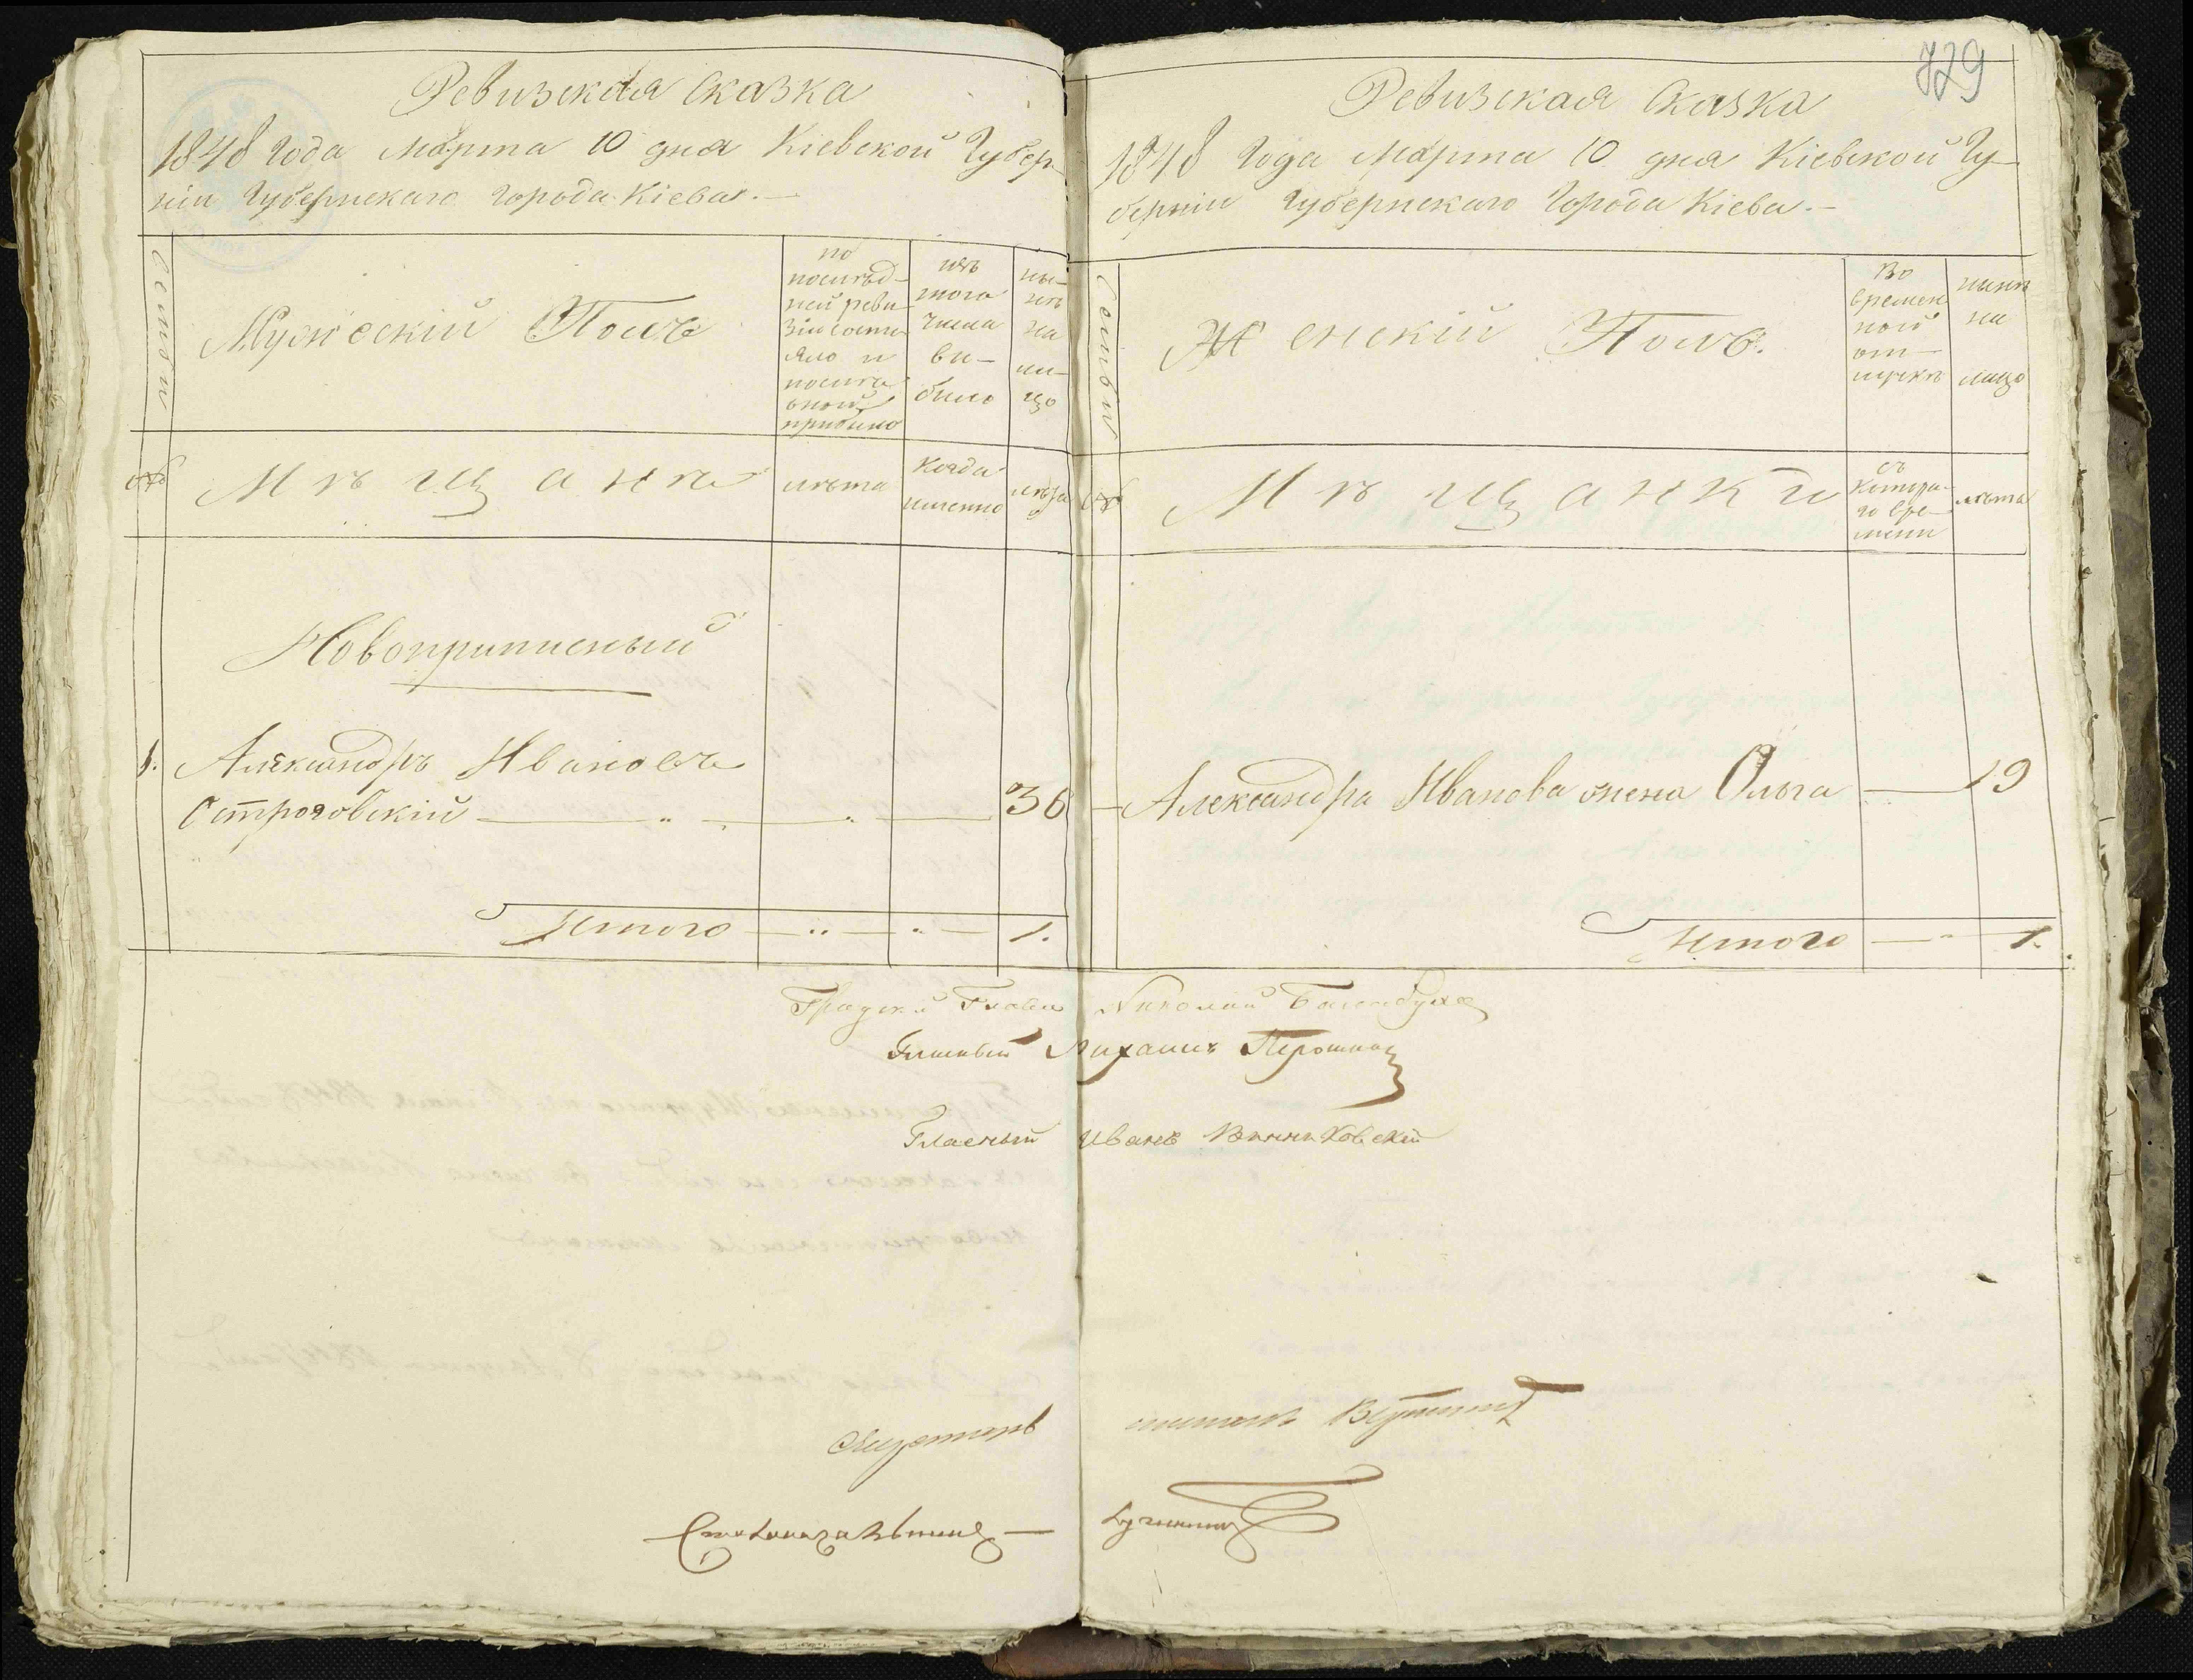 Ревизская Сказка
1848 года Марта 10 дня Кіевской Губер
ніи Губернскаго города Кіева.—
Семьи
Мужескій Полъ
по
послѣд-
ней реви
зіи состо
яло и
послѣ
оной
прибыло
изъ
того
числа
вы-
было
ны-
нѣ
на
ли-
цо
№
Мѣщане
лѣта
когда
именно
лѣта
Новоприписный
1. Александръ Ивановъ
Остроговскій — " — " — 36
Итого — " — " — 1.
729
Ревизская Сказка
1848 года Марта 10 дня Кіевской Гу-
берніи Губернскаго Города Кіева.—
Семьи
Женскій Полъ.
Во
времен
ной
от-
лучкѣ
нынѣ
на
лицо
№
Мѣщанки
съ
котора-
го вре-
мени
лѣта
Александра Иванова жена Ольга — 19
Итого — " — 1.
Градскій Глава Николай Балабуха
Гласный Михаилъ
Гласный Иванъ Винниковскій